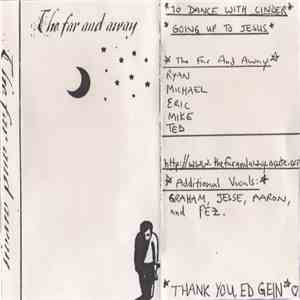 The far and away
The far and away
*TO DANCE WITH CINDER*
*GOING UP TO JESUS*
* The Far And Away *
RYAN
MICHAEL
ERIC
MIKE
TED
* Additional Vocals: *
GRAHAM, JESSE, AARON,
and PÉZ.
*THANK YOU ED GEIN*